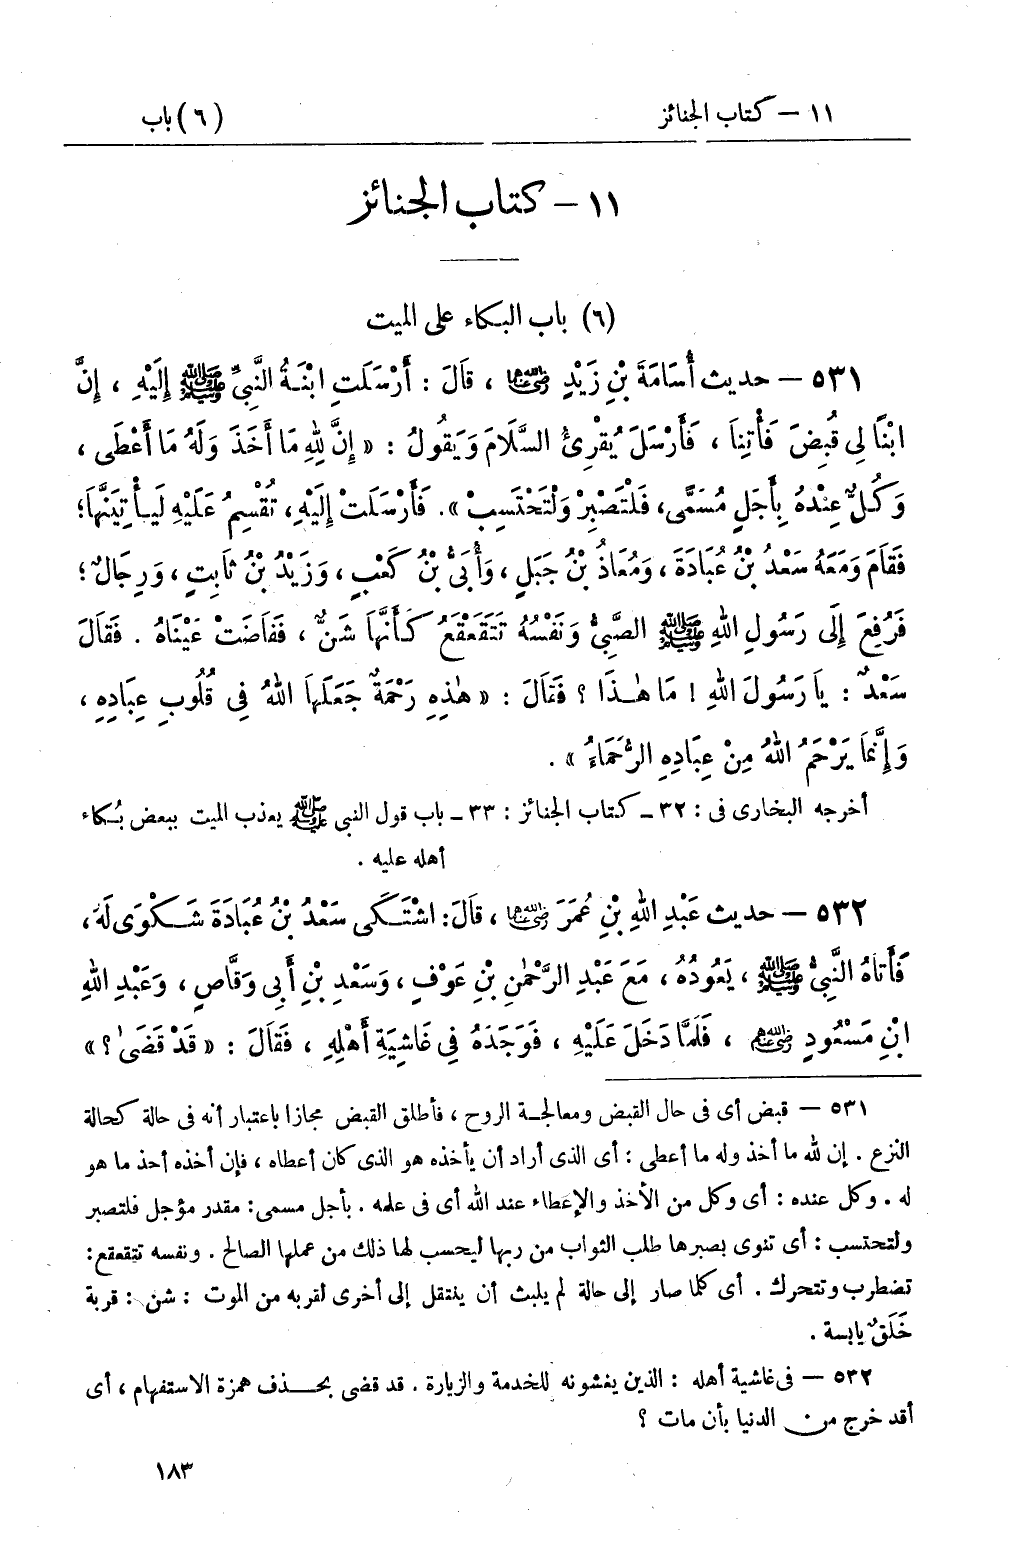 ١١ – كتاب الجنائز (٦) باب
١١ – كتاب الجنائز
(٦) باب البكاء على الميت
٥٣١ – حديث أُسَامَةَ بْنِ زَيْدٍ رضي الله عنهما ، قَالَ : أَرْسَلَتِ ابْنَةُ النَّبِيِّ ﷺ إِلَيْهِ ، إِنَّ
ابْنًا لِى قُبِضَ فَأْتِنَا ، فَأَرْسَلَ يُقْرِئُ السَّلَامَ وَيَقُولُ : « إِنَّ لِلّٰهِ مَا أَخَذَ وَلَهُ مَا أَعْطَى ،
وَكُلٌّ عِنْدَهُ بِأَجَلٍ مُسَمًّى، فَلْتَصْبِرْ وَلْتَحْتَسِبْ ». فَأَرْسَلَتْ إِلَيْهِ، تُقْسِمُ عَلَيْهِ لَيَأْتِيَنَّهَا؛
فَقَامَ وَمَعَهُ سَعْدُ بْنُ عُبَادَةَ ، وَمُعَاذُ بْنُ جَبَلٍ ، وَأُبَىُّ بْنُ كَعْبٍ ، وَزَيْدُ بْنُ ثَابِتٍ ، وَرِجَالٌ ؛
فَرُفِعَ إِلَى رَسُولِ اللهِ ﷺ الصَّبِىُّ وَنَفْسُهُ تَتَقَعْقَعُ كَأَنَّهَا شَنٌّ ، فَفَاضَتْ عَيْنَاهُ . فَقَالَ
سَعْدٌ : يَا رَسُولَ اللهِ ! مَا هٰذَا ؟ فَقَالَ : « هٰذِهِ رَحْمَةٌ جَعَلَهَا اللهُ فِى قُلُوبِ عِبَادِهِ ،
وَإِنَّمَا يَرْحَمُ اللهُ مِنْ عِبَادِهِ الرُّحَمَاءَُ » .
أخرجه البخارى فى : ٣٢ – كتاب الجنائز : ٣٣ – باب قول النبى ﷺ يعذب الميت ببعض بُكاء
أهله عليه .
٥٣٢ – حديث عَبْدِ اللهِ بْنِ عُمَرَ رضي الله عنهما ، قَالَ: اشْتَكَى سَعْدُ بْنُ عُبَادَةَ شَكْوَى لَهُ ،
فَأَتَاهُ النَّبِىُّ ﷺ ، يَعُودُهُ ، مَعَ عَبْدِ الرَّحْمٰنِ بْنِ عَوْفٍ ، وَسَعْدِ بْنِ أَبِى وَقَّاصٍ ، وَعَبْدِ اللهِ
ابْنِ مَسْعُودٍ رضي الله عنهم ، فَلَمَّا دَخَلَ عَلَيْهِ ، فَوَجَدَهُ فِى غَاشِيَةِ أَهْلِهِ ، فَقَالَ : « قَدْ قَضَىٰ ؟ »
٥٣١ – قبض أى فى حال القبض ومعالجة الروح ، فأطلق القبض مجازا باعتبار أنه فى حالة كحالة
النزع . إن لله ما أخذ وله ما أعطى : أى الذى أراد أن يأخذه هو الذى كان أعطاه ، فإن أخذه أخذ ما هو
له . وكل عنده : أى وكل من الأخذ والإعطاء عند الله أى فى علمه . بأجل مسمى: مقدر مؤجل فلتصبر
ولتحتسب : أى تنوى بصبرها طلب الثواب من ربها ليحسب لها ذلك من عملها الصالح . ونفسه تتقعقع:
تضطرب وتتحرك . أى كلما صار إلى حالة لم يلبث أن ينتقل إلى أخرى لقربه من الموت : شن : قربة
خَلَقٌ يابسة .
٥٣٢ – فى غاشية أهله : الذين يغشونه للخدمة والزيارة . قد قضى بحذف همزة الاستفهام ، أى
أقد خرج من الدنيا بأن مات ؟
١٨٣